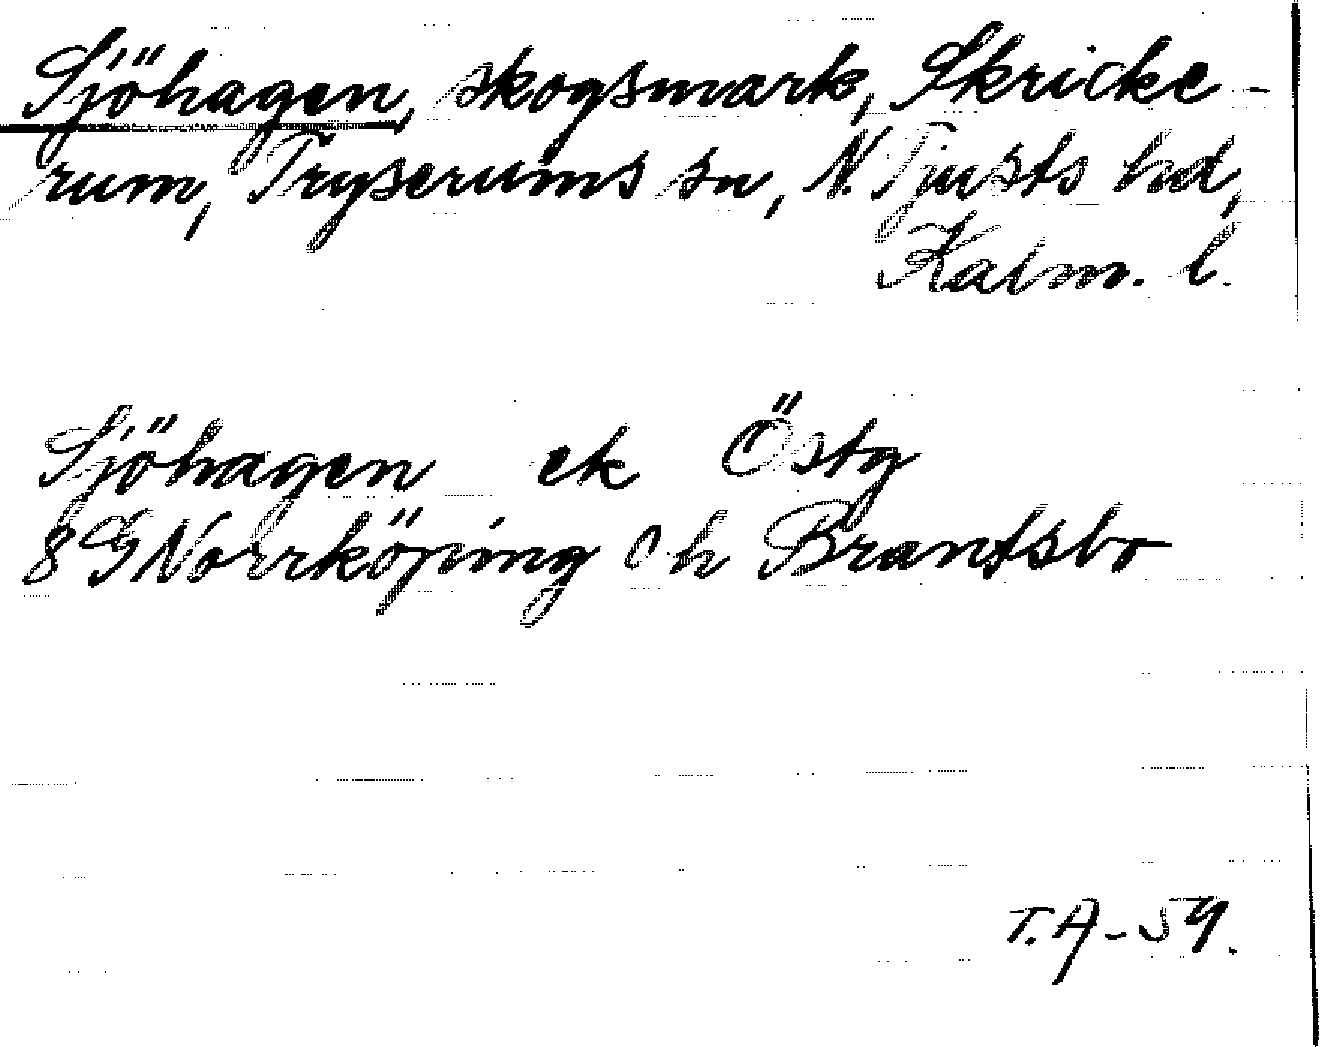 Sjöhagen, skogsmark, Skricke-
rum, Tryserums sn, N. Tjusts hd,
Kalm. l.
Sjöhagen ek Östg
8G Norrköping Ch Brantsbo
T.A-59.